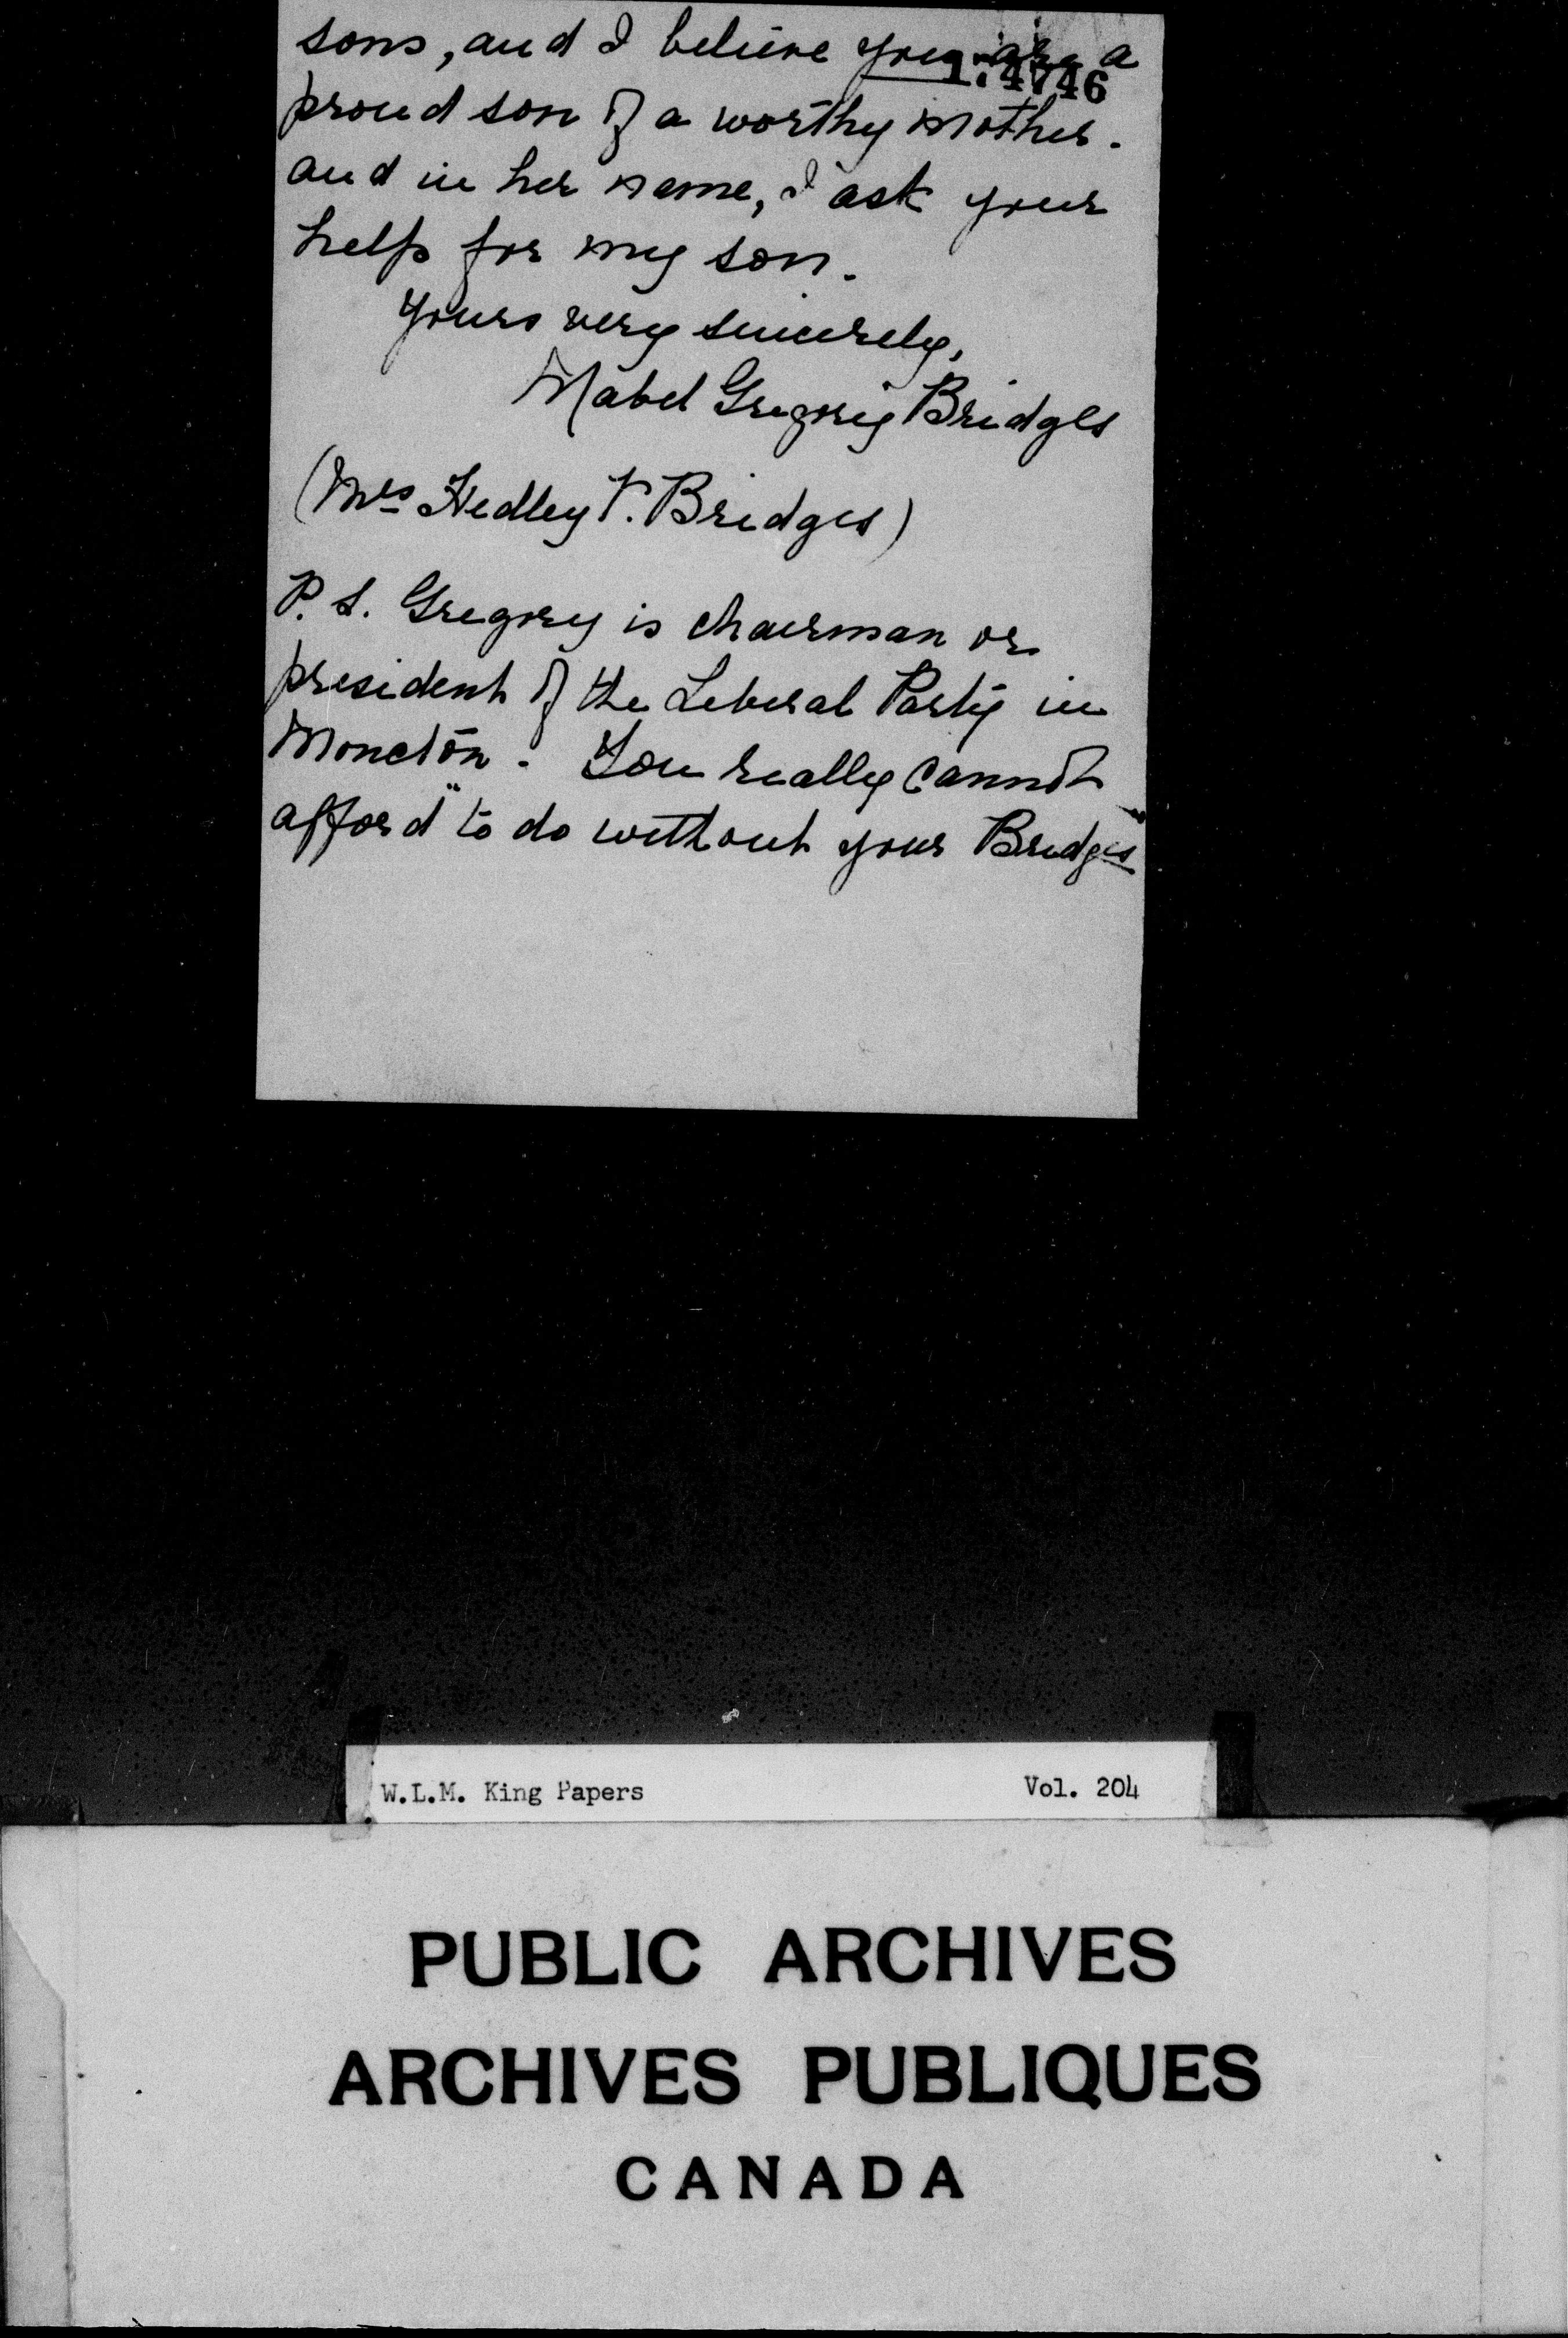 sons, and I believe you are a
1:4746
proud son of a worthy mother.
and in her name, I ask your
help for my son.
Yours very sincerely,
Mabel Gregory Bridges
(Mrs Hedley V. Bridges)
P.S. Gregory is chairman or
president of the Liberal Party in
Moncton. You really cannot
afford "to do without your Bridges"
W.L.M. King Papers Vol. 204
PUBLIC ARCHIVES
ARCHIVES PUBLIQUES
CANADA